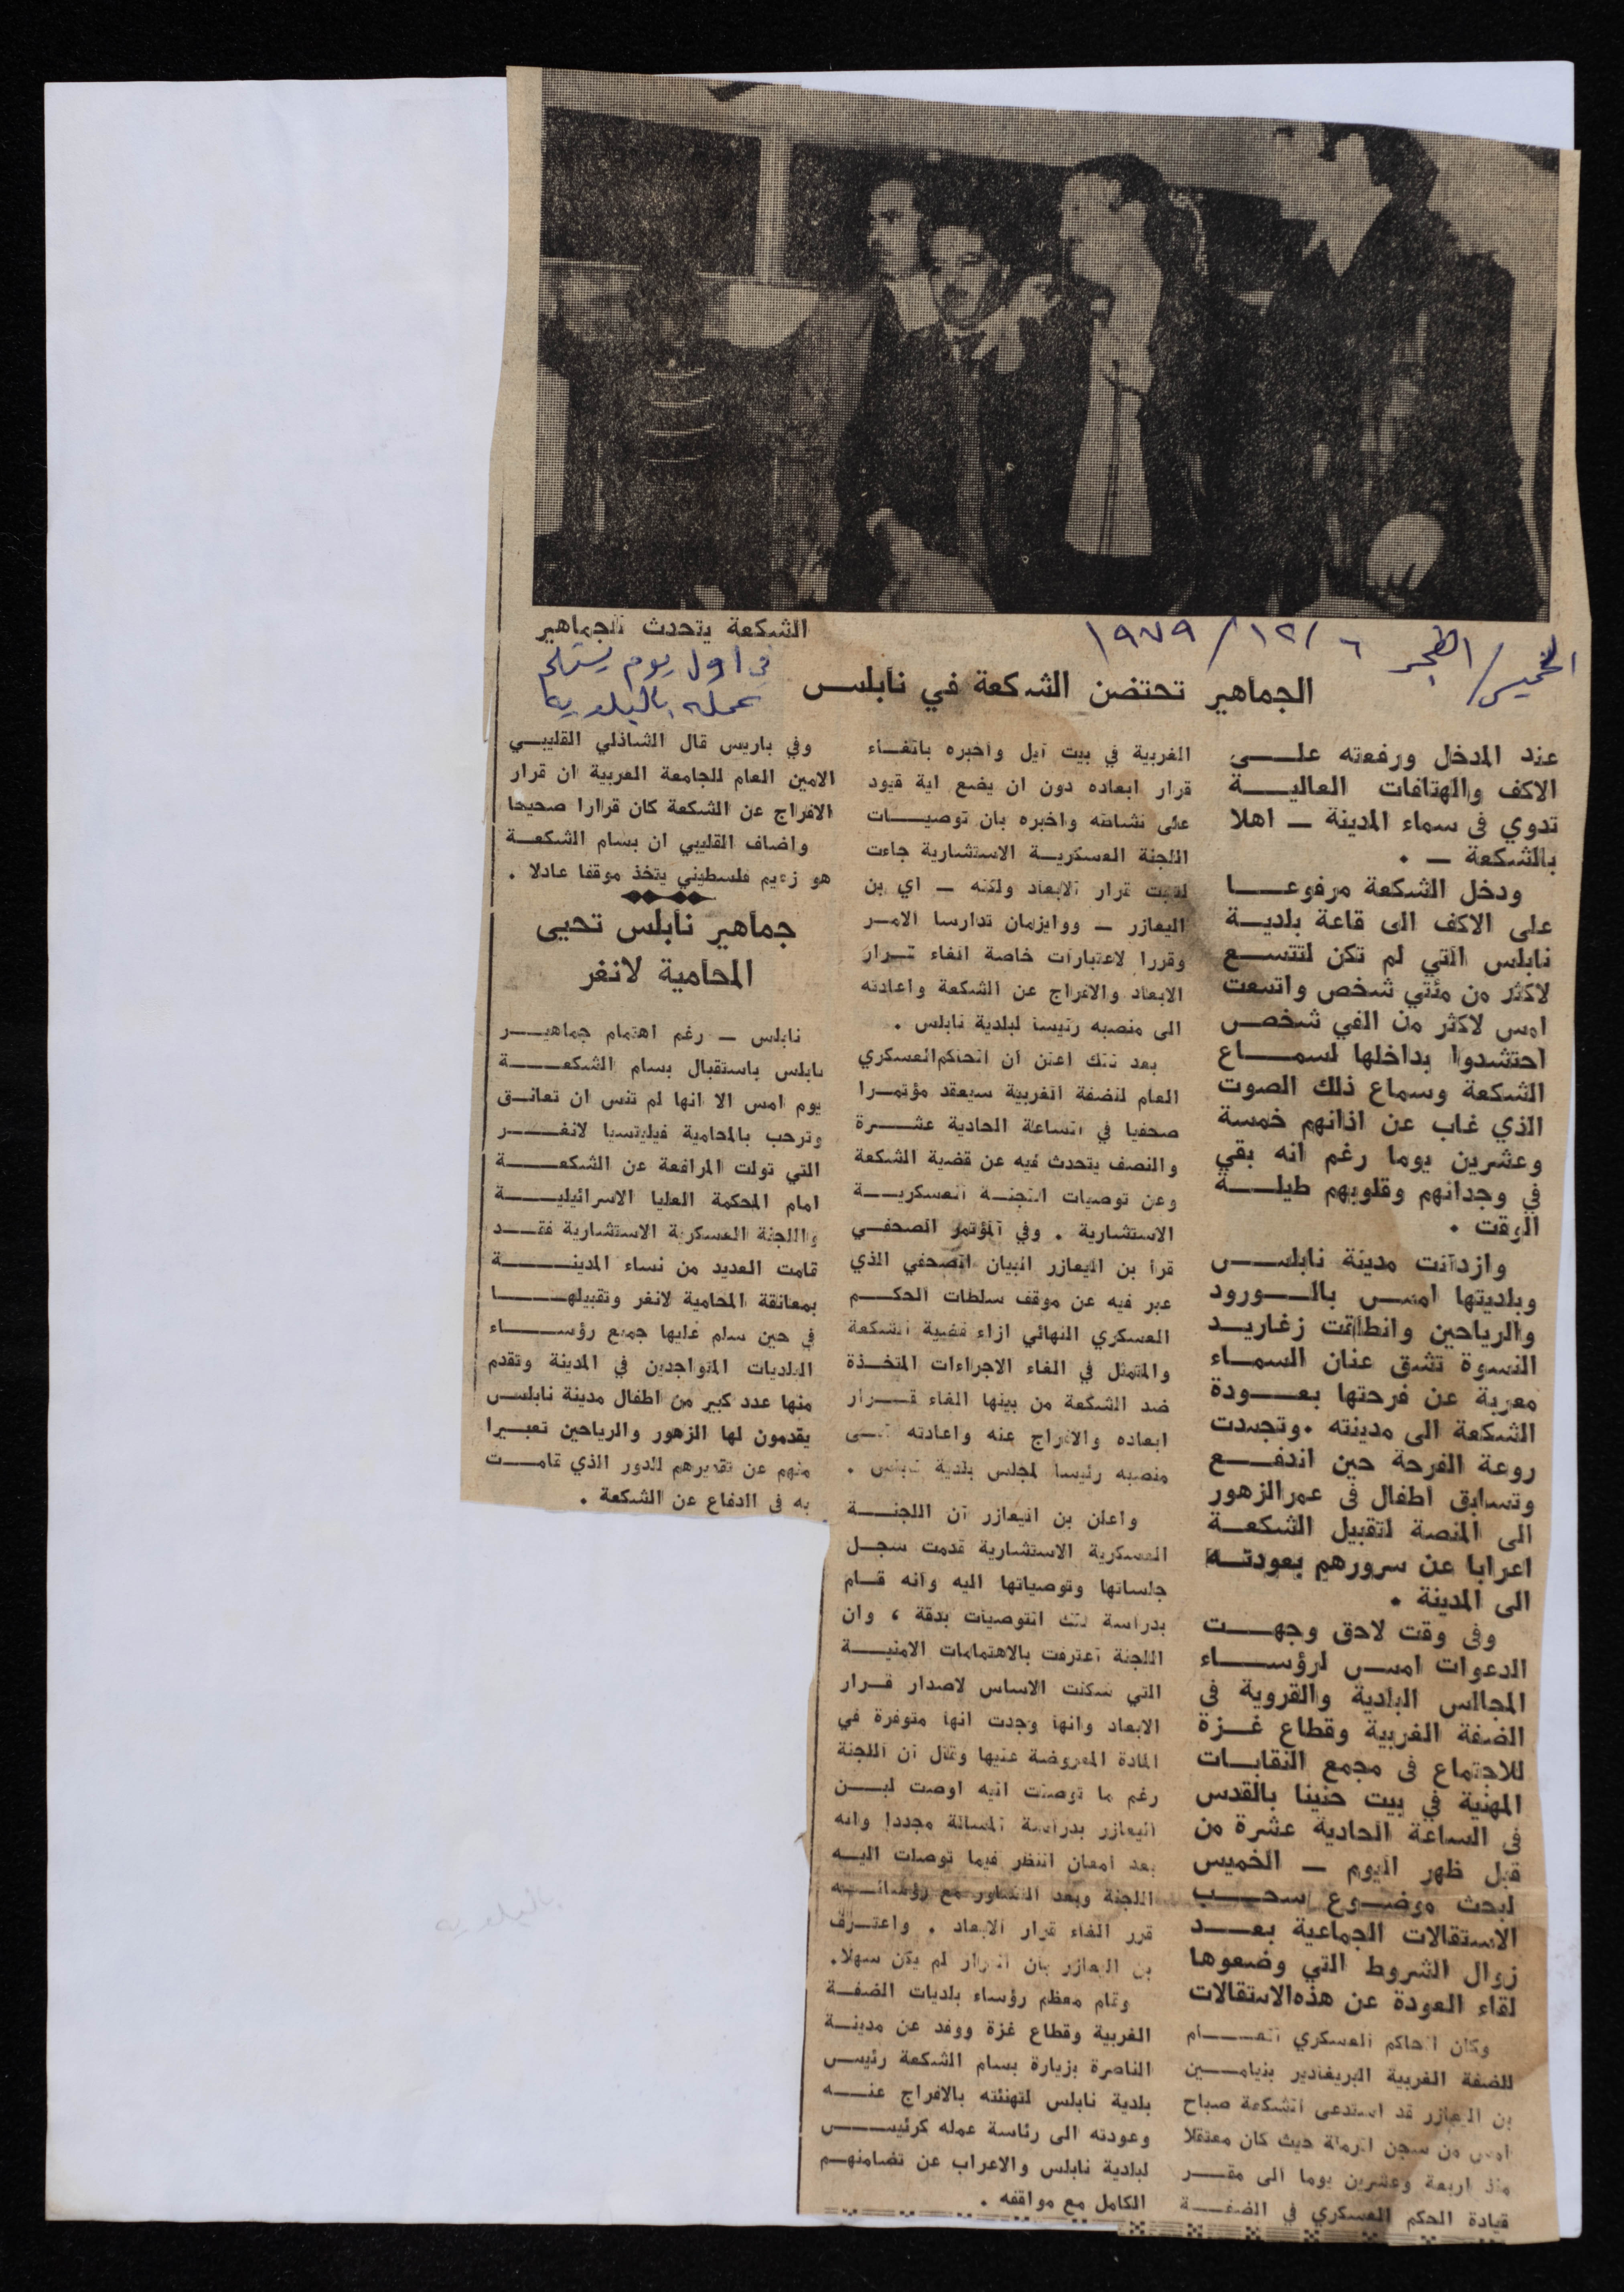 الشكعة يتحدث للجماهير
في اول يوم يستلم
عمله بالبلدية
الخميس / الفجر ٦ / ١٢ / ١٩٧٩
الجماهير تحتضن الشكعة في نابلس
عند المدخل ورفعته على
الاكف والهتافات العالية
تدوي في سماء المدينة ــ اهلا
بالشكعة ــ .
ودخل الشكعة مرفوعا
على الاكف الى قاعة بلدية
نابلس التي لم تكن لتتسع
لاكثر من مئتي شخص واتسعت
امس لاكثر من الفي شخص
احتشدوا بداخلها لسماع
الشكعة وسماع ذلك الصوت
الذي غاب عن اذانهم خمسة
وعشرين يوما رغم انه بقي
في وجدانهم وقلوبهم طيلة
الوقت .
وازدانت مدينة نابلس
وبلديتها امس بالورود
والرياحين وانطلقت زغاريد
النسوة تشق عنان السماء
معربة عن فرحتها بعودة
الشكعة الى مدينته .وتجسدت
روعة الفرحة حين اندفع
وتسابق اطفال في عمر الزهور
الى المنصة لتقبيل الشكعة
اعرابا عن سرورهم بعودته
الى المدينة .
وفي وقت لاحق وجهت
الدعوات امس لرؤساء
المجالس البلدية والقروية في
الضفة الغربية وقطاع غزة
للاجتماع في مجمع النقابات
المهنية في بيت حنينا بالقدس
في الساعة الحادية عشرة من
قبل ظهر اليوم ــ الخميس
لبحث موضوع سحب
الاستقالات الجماعية بعد
زوال الشروط التي وضعوها
لقاء العودة عن هذه الاستقالات
وكان الحاكم العسكري العام
للضفة الغربية البريغادير بنيامين
بن اليعازر قد استدعى الشكعة صباح
امس من سجن الرملة حيث كان معتقلا
منذ اربعة وعشرين يوما الى مقر
قيادة الحكم العسكري في الضفة
الغربية في بيت ايل واخبره بالغاء
قرار ابعاده دون ان يضع اية قيود
على نشاطه واخبره بان توصيات
اللجنة العسكرية الاستشارية جاءت
لتثبت قرار الابعاد ولكنه ــ اي بن
اليعازر ــ ووايزمان تدارسا الامر
وقررا لاعتبارات خاصة الغاء قرار
الابعاد والافراج عن الشكعة واعادته
الى منصبه رئيسا لبلدية نابلس .
بعد ذلك اعلن ان الحاكم العسكري
العام للضفة الغربية سيعقد مؤتمرا
صحفيا في الساعة الحادية عشرة
والنصف يتحدث فيه عن قضية الشكعة
وعن توصيات اللجنة العسكرية
الاستشارية . وفي المؤتمر الصحفي
قرأ بن اليعازر البيان الصحفي الذي
عبر فيه عن موقف سلطات الحكم
العسكري النهائي ازاء قضية الشكعة
والمتمثل في الغاء الاجراءات المتخذة
ضد الشكعة من بينها الغاء قرار
ابعاده والافراج عنه واعادته الى
منصبه رئيسا لمجلس بلدية نابلس .
واعلن بن اليعازر ان اللجنة
العسكرية الاستشارية قدمت سجل
جلساتها وتوصياتها اليه وانه قام
بدراسة تلك التوصيات بدقة ، وان
اللجنة اعترفت بالاهتمامات الامنية
التي شكلت الاساس لاصدار قرار
الابعاد وانها وجدت انها متوفرة في
المادة المعروضة عليها وقال ان اللجنة
رغم ما توصلت اليه اوصت لبن
اليعازر بدراسة المسالة مجددا وانه
بعد امعان النظر فيما توصلت اليه
اللجنة وبعد التشاور مع رؤسائه
قرر الغاء قرار الابعاد . واعترف
بن اليعازر بان القرار لم يكن سهلا.
وقام معظم رؤساء بلديات الضفة
الغربية وقطاع غزة ووفد عن مدينة
الناصرة بزيارة بسام الشكعة رئيس
بلدية نابلس لتهنئته بالافراج عنه
وعودته الى رئاسة عمله كرئيس
لبلدية نابلس والاعراب عن تضامنهم
الكامل مع مواقفه .
وفي باريس قال الشاذلي القليبي
الامين العام للجامعة العربية ان قرار
الافراج عن الشكعة كان قرارا صحيحا
واضاف القليبي ان بسام الشكعة
هو زعيم فلسطيني يتخذ موقفا عادلا .
جماهير نابلس تحيى
المحامية لانغر
نابلس ــ رغم اهتمام جماهير
نابلس باستقبال بسام الشكعة
يوم امس الا انها لم تنس ان تعانق
وترحب بالمحامية فيليتسيا لانغر
التي تولت المرافعة عن الشكعة
امام المحكمة العليا الاسرائيلية
واللجنة العسكرية الاستشارية فقد
قامت العديد من نساء المدينة
بمعانقة المحامية لانغر وتقبيلها
في حين سلم عليها جميع رؤساء
البلديات المتواجدين في المدينة وتقدم
منها عدد كبير من اطفال مدينة نابلس
يقدمون لها الزهور والرياحين تعبيرا
منهم عن تقديرهم للدور الذي قامت
به في الدفاع عن الشكعة .